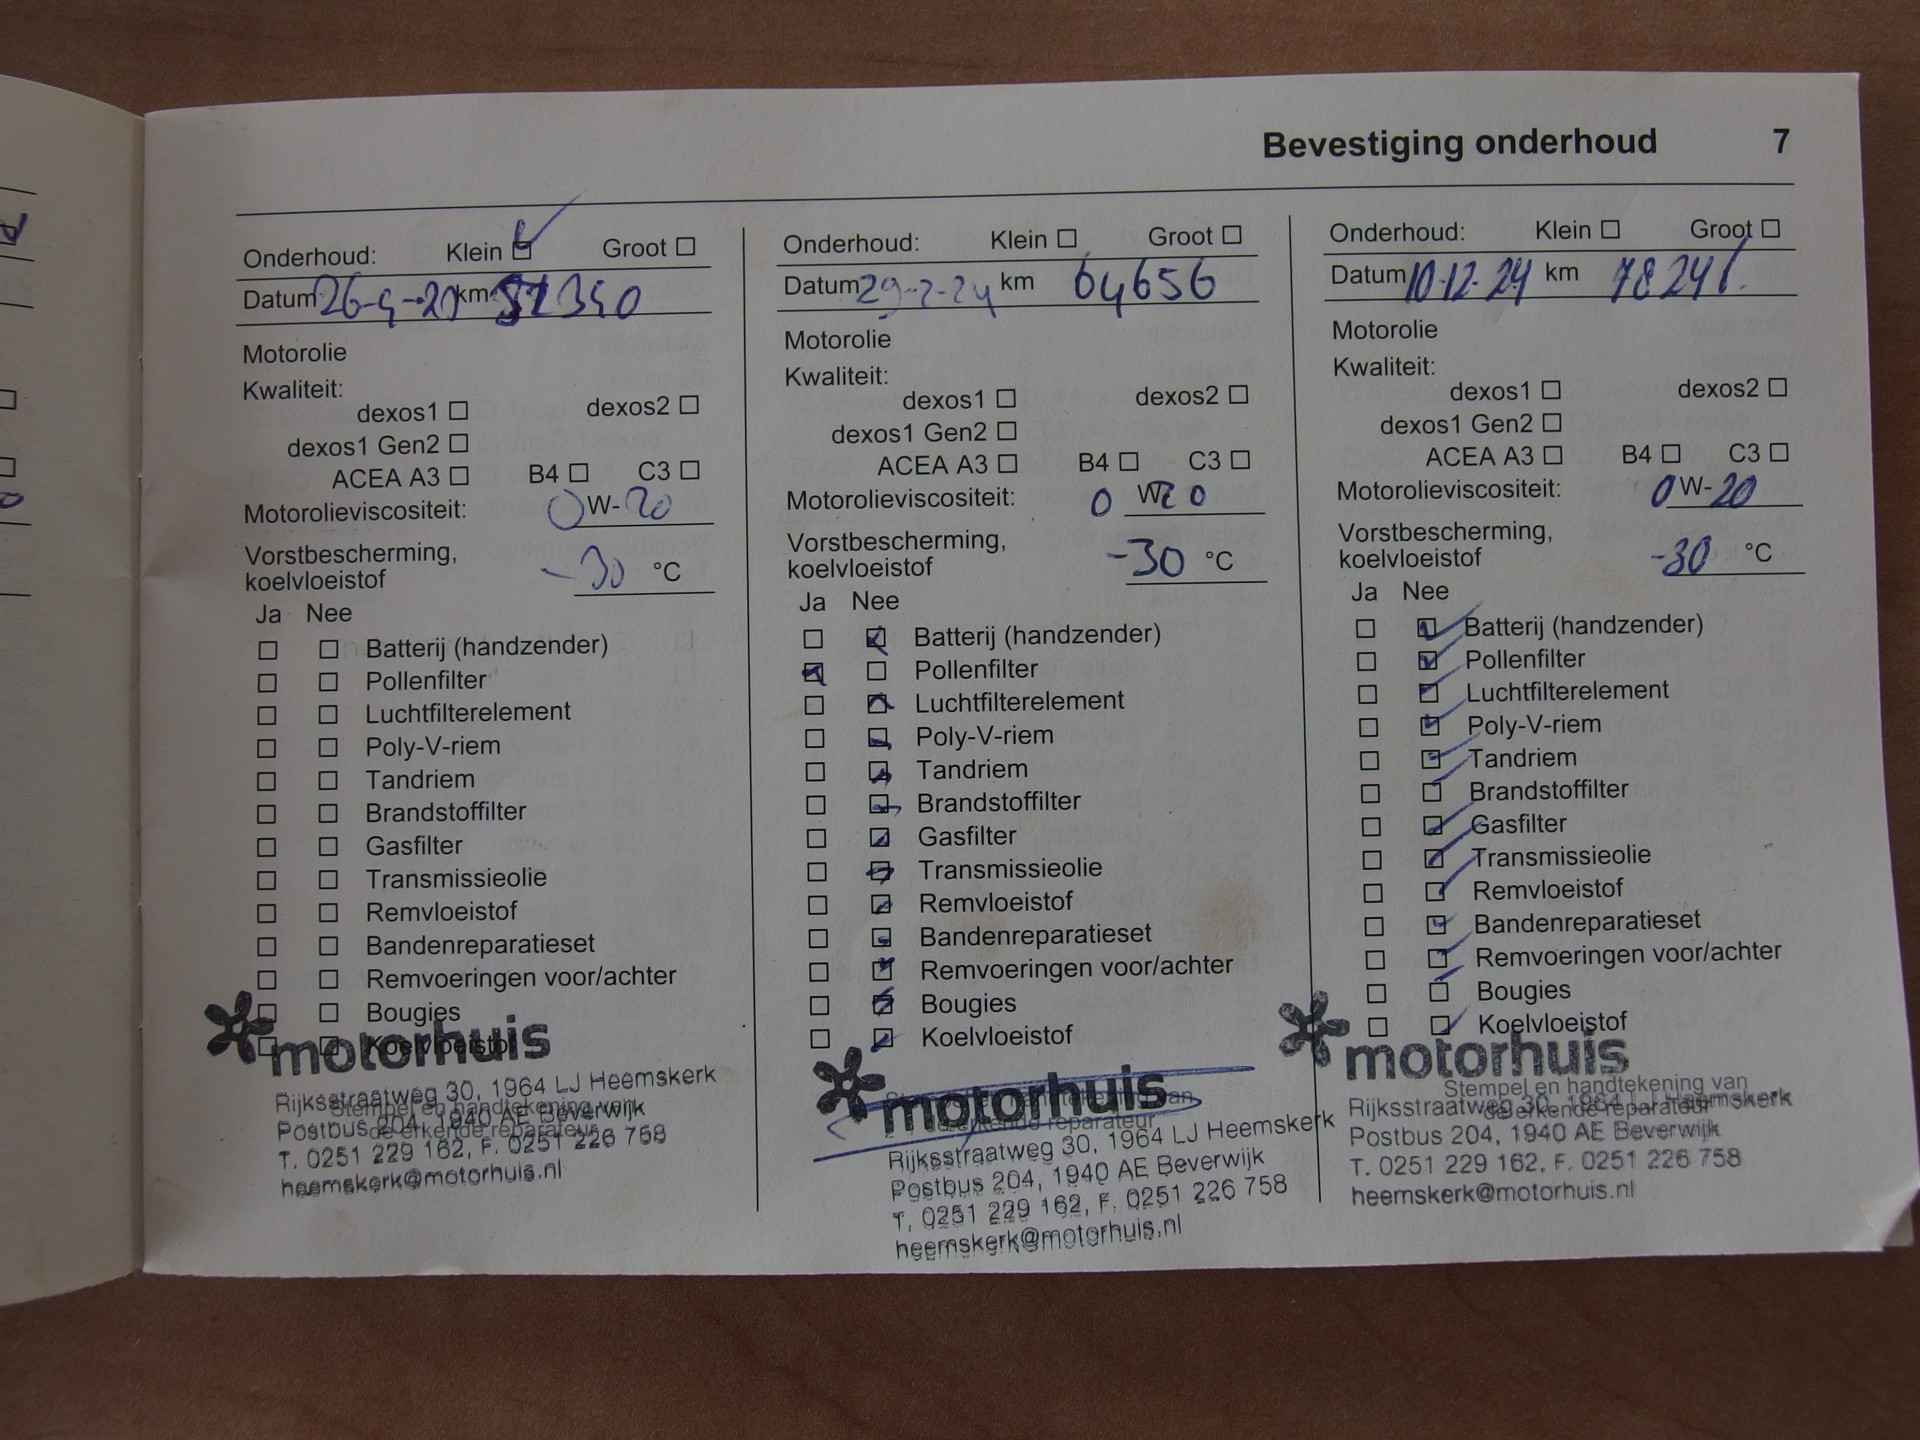 Bevestiging onderhoud 7
Onderhoud: Klein Groot
Datum km
Motorolie
Kwaliteit:
dexos1 dexos2
dexos1 Gen2
ACEA A3 B4 C3
Motorolieviscositeit: 0 W-20
Vorstbescherming,
koelvloeistof -30 °C
Ja Nee
Batterij (handzender)
Pollenfilter
Luchtfilterelement
Poly-V-riem
Tandriem
Brandstoffilter
Gasfilter
Transmissieolie
Remvloeistof
Bandenreparatieset
Remvoeringen voor/achter
Bougies
Koelvloeistof
motorhuis
Rijksstraatweg 30, 1964 LJ Heemskerk
Stempel en handtekening van
Postbus 204, 1940 AE Beverwijk
de erkende reparateur
T. 0251 229 162, F. 0251 226 758
heemskerk@motorhuis.nl
Onderhoud: Klein Groot
Datum 29-2-24 km 64656
Motorolie
Kwaliteit:
dexos1 dexos2
dexos1 Gen2
ACEA A3 B4 C3
Motorolieviscositeit: 0 W 20
Vorstbescherming,
koelvloeistof -30 °C
Ja Nee
Batterij (handzender)
Pollenfilter
Luchtfilterelement
Poly-V-riem
Tandriem
Brandstoffilter
Gasfilter
Transmissieolie
Remvloeistof
Bandenreparatieset
Remvoeringen voor/achter
Bougies
Koelvloeistof
motorhuis
Stempel en handtekening van
de erkende reparateur
Rijksstraatweg 30, 1964 LJ Heemskerk
Postbus 204, 1940 AE Beverwijk
T. 0251 229 162, F. 0251 226 758
heemskerk@motorhuis.nl
Onderhoud: Klein Groot
Datum 10-12-24 km 78241
Motorolie
Kwaliteit:
dexos1 dexos2
dexos1 Gen2
ACEA A3 B4 C3
Motorolieviscositeit: 0 W-20
Vorstbescherming,
koelvloeistof -30 °C
Ja Nee
Batterij (handzender)
Pollenfilter
Luchtfilterelement
Poly-V-riem
Tandriem
Brandstoffilter
Gasfilter
Transmissieolie
Remvloeistof
Bandenreparatieset
Remvoeringen voor/achter
Bougies
Koelvloeistof
motorhuis
Stempel en handtekening van
Rijksstraatweg 30, 1964 LJ Heemskerk
de erkende reparateur
Postbus 204, 1940 AE Beverwijk
T. 0251 229 162, F. 0251 226 758
heemskerk@motorhuis.nl